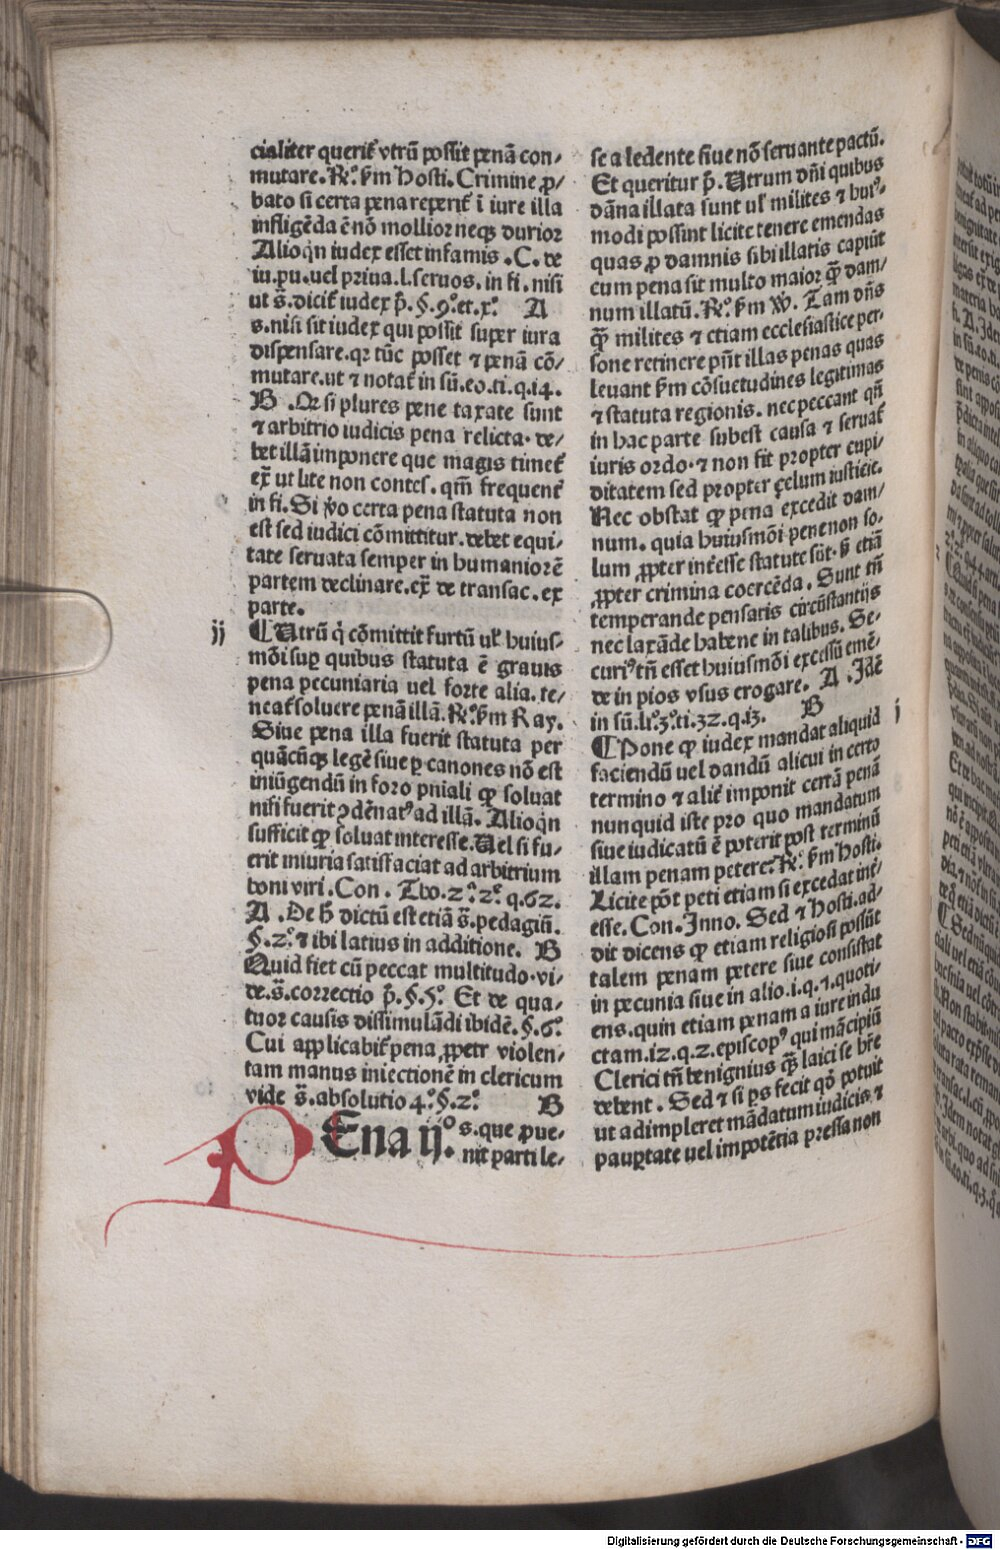 cialiter querit᷑ vtrū possit penā con-
mutare. R̓. ẜm Hosti. Crimine ꝓ-
bato si certa pena reperit᷑ ī iure illa
infligēda ē nō mollior neqꝫ durior
Alioqn̄ iudex esset infamis .C. de
iu. pu. uel priua. l. seruos. in fi. nisi
ut s̄. dicit᷑ iudex p̄. §. 9.º et. x.º A
s. nisi sit iudex qui possit super iura
dispensare. qꝛ tūc posset ⁊ penā cō-
mutare. ut ⁊ notat᷑ in sū. eo. ti. q. 14.
B .Qꝫ si plures pene taxate sunt
⁊ arbitrio iudicis pena relicta. de-
bet illā imponere que magis timet᷑
ex̄ ut lite non contes. qm̄ frequent᷑
in fi. Si ṽo certa pena statuta non
est sed iudici cōmittitur. debet equi-
tate seruata semper in humaniorē
partem declinare. ex̄ de transac. ex
parte.
ij ¶ Utrū q̇ cōmittit furtū ul᷑ huius-
mōi suꝑ quibus statuta ē grauis
pena pecuniaria uel forte alia. te-
neat᷑ soluere penā illā. R̓. ẜm Ray.
Siue pena illa fuerit statuta per
quācūqꝫ legē siue ꝑ canones nō est
iniūgendū in foro pn̄iali ꝙ soluat
nisi fuerit ꝯdēnatꝰ ad illā. Alioqn̄
sufficit ꝙ soluat interesse. Uel si fu-
erit iniuria satisfaciat ad arbitrium
boni viri. Con. Tho. 2.ª 2.ᵉ q. 62.
A .De h̄ dictū est etiā s̄. pedagiū.
§. 2.º ⁊ ibi latius in additione. B
Quid fiet cū peccat multitudo. vi-
de. s̄. correctio p̄. §. 5.º Et de qua-
tuor causis dissimulādi ibidē. §. 6.º
Cui applicabit᷑ pena ꝓpetr violen-
tam manus iniectionē in clericum
vide s̄. absolutio 4.º §. 2.º B
PEna ij.º s. que ꝓue-
nit parti le-
se a ledente siue nō seruante pactū.
Et queritur p̄. Utrum dn̄i quibus
dāna illata sunt ul᷑ milites ⁊ huiꝰ-
modi possint licite tenere emendas
quas ꝓ damnis sibi illatis capiūt
cum pena sit multo maior ꝙ̄ dam-
num illatū. R̓. ẜm W̄. Tam dn̄s
ꝙ̄ milites ⁊ etiam ecclesiastice per-
sone retinere pn̄t illas penas quas
leuant ẜm cōsuetudines legitimas
⁊ statuta regionis. nec peccant qn̄
in hac parte subest causa ⁊ seruat᷑
iuris ordo. ⁊ non fit propter cupi-
ditatem sed propter çelum iusticie.
Nec obstat ꝙ pena excedit dam-
num. quia huiusmōi pene non so-
lum ꝓpter int̓esse statute sūt. ẜ etiā
ꝓpter crimina coercēda. Sunt tn̄
temperande pensatis circūstantijs
nec laxāde habene in talibus. Se-
curiꝰ tn̄ esset huiusmōi excessū emē-
de in pios vsus erogare. A .Idē
in sū. li.º 3.º ti. 32. q. 13. B
j ¶ Pone ꝙ iudex mandat aliquid
faciendū uel dandū alicui in certo
termino ⁊ alit᷑ imponit certā penā
nunquid iste pro quo mandatum
siue iudicatū ē poterit post terminū
illam penam petere? R̓. ẜm Hosti.
Licite pōt peti etiam si excedat int̓-
esse. Con. Inno. Sed ⁊ Hosti. ad-
dit dicens ꝙ etiam religiosi possūt
talem penam petere siue consistat
in pecunia siue in alio. i. q. 1. quoti-
ens. quin etiam penam a iure indu
ctam. 12. q. 2. episcopꝰ qui mācipiū
Clerici tn̄ benignius ꝙ̄ laici se hr̄e
debent. Sed ⁊ si ꝑs fecit qō potuit
ut adimpleret mādatum iudicis ⁊
pauꝑtate uel impotētia pressa non
Digitalisierung gefördert durch die Deutsche Forschungsgemeinschaft - DFG